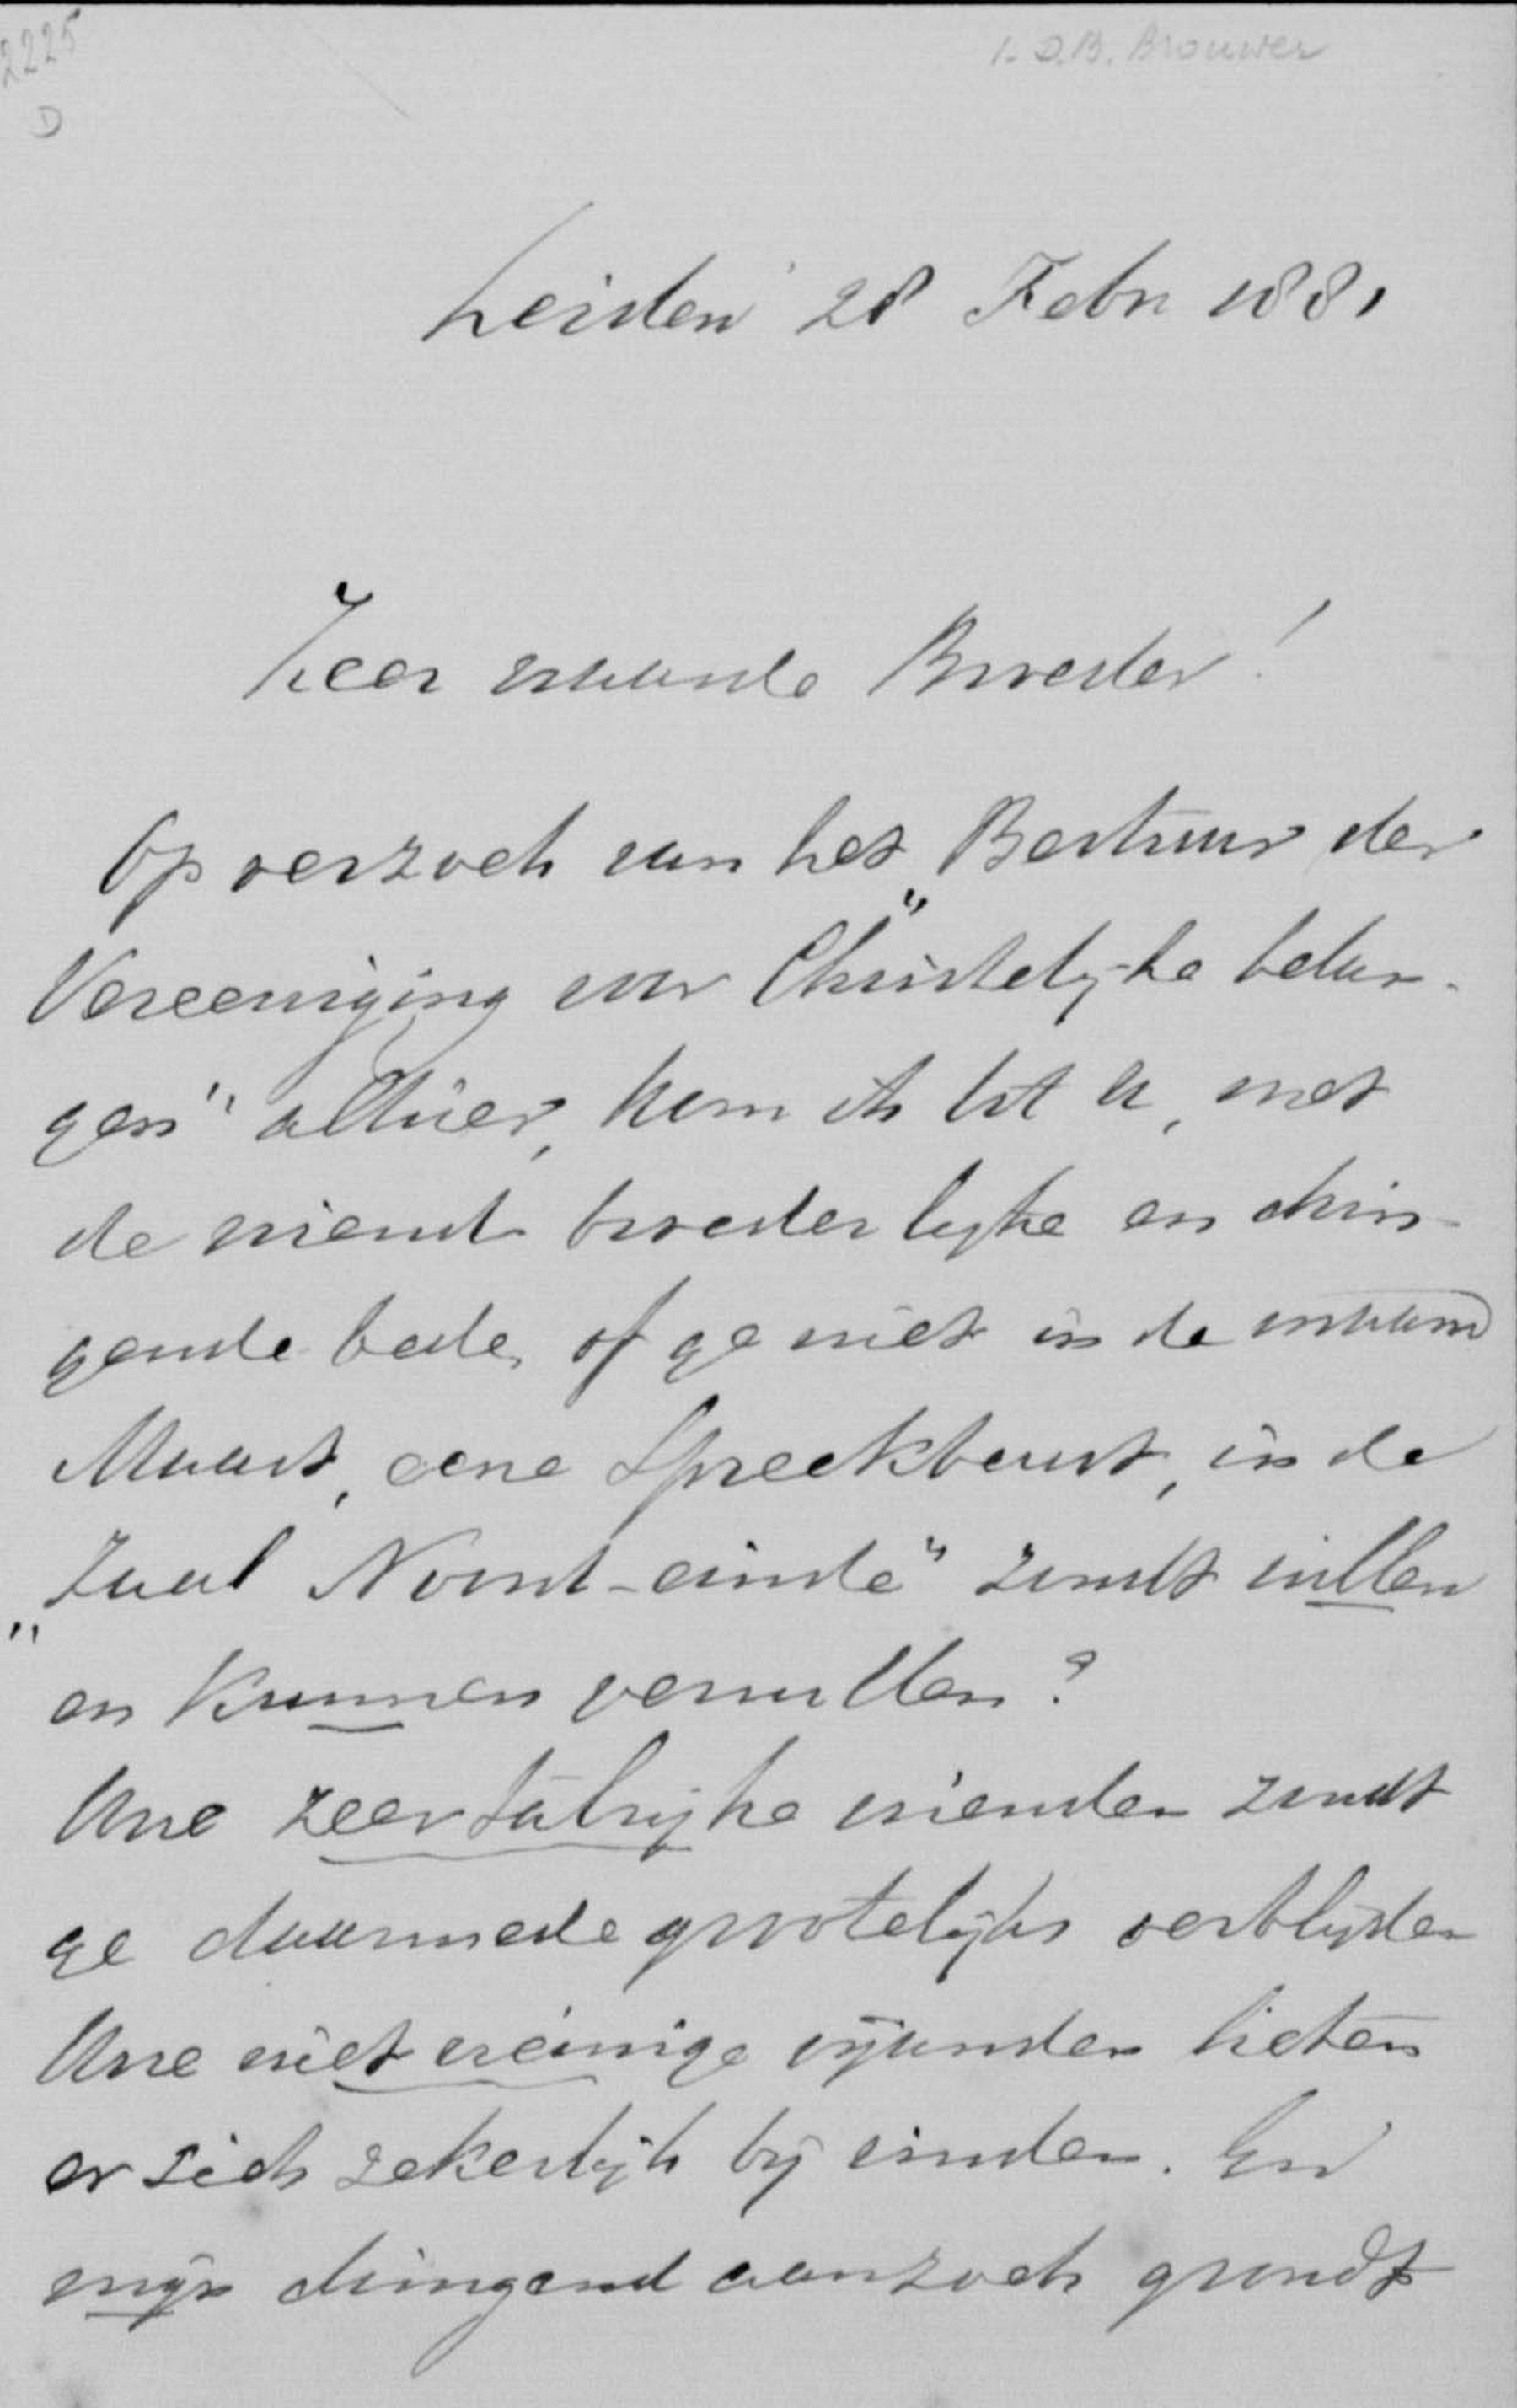 2225
D
I. D.B. Brouwer
Leiden 28 Febr 1881
Zeer waarde Broeder!
Op verzoek van het Bestuur der
„Vereeniging voor Christelijke belan-
gen" alhier, kom ik tot u, met
de vriend-broederlyke en drin-
gende bede, of ge niet in de maand
Maart, eene Spreekbeurt, in de
„Zaal Noord-einde" zoudt willen
en kunnen vervullen?
Uwe zeer talrijke vrienden zoudt
ge daarmede grootelijks verblijden
Uwe niet weinige vijanden lieten
er zich zekerlijk bij vinden. En
mijn dringend aanzoek grondt